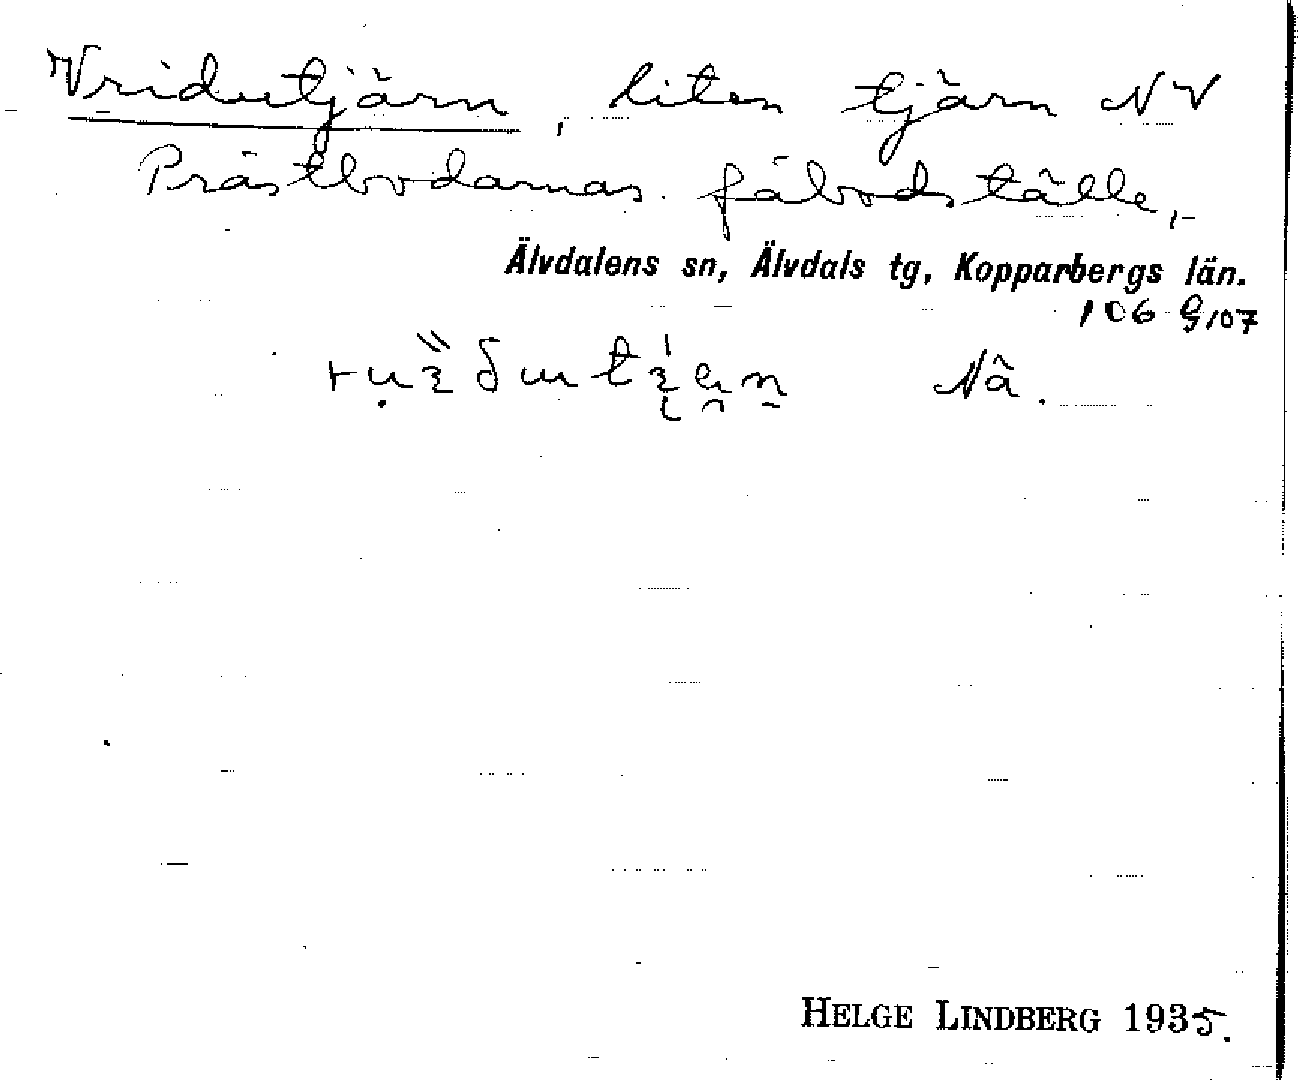 Vridutjärn, liten tjärn NV
Prästbodarnas fäbodställe,
Älvdalens sn, Älvdals tg, Kopparbergs län.
106 G/07
Nä.
HELGE LINDBERG 1935.